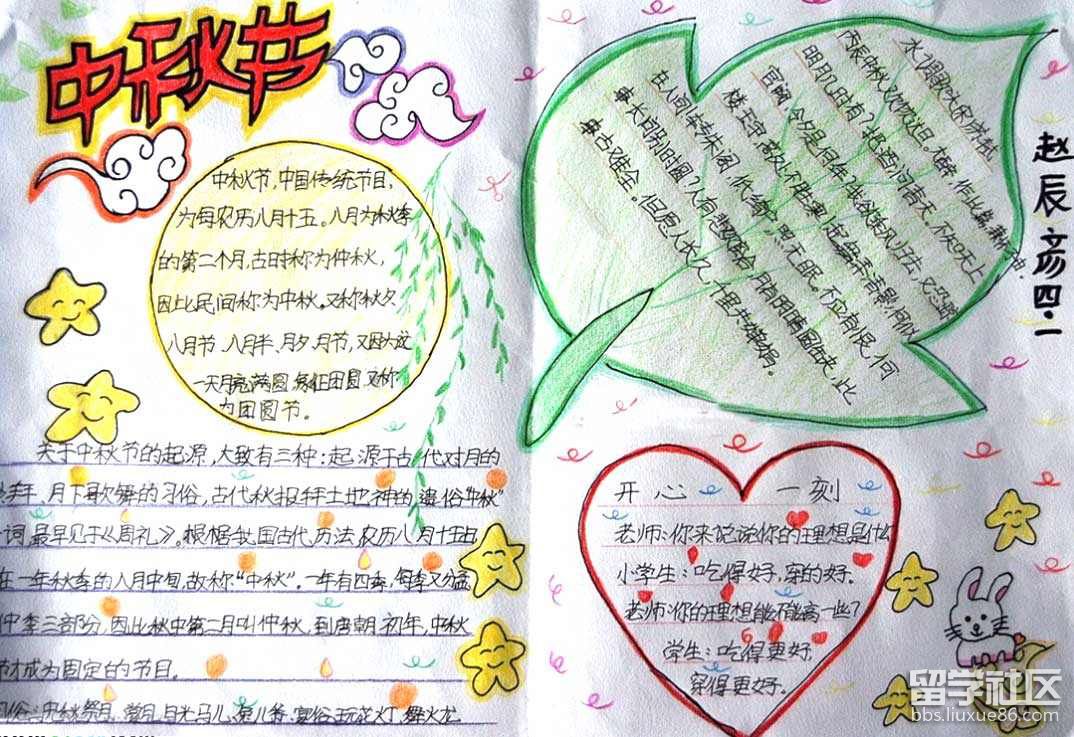 中秋节
中秋节,中国传统节目,
为每农历八月十五。八月为秋季
的第二个月,古时称为仲秋,
因比民间称为中秋。又称秋夕
八月节、八月半、月夕、月节,又因
一天月亮满圆,象征团圆,又称
为团圆节。
关于中秋节的起源,大致有三种:起源于古代对月的
月下歌舞的习俗,古代秋报拜土地神的遗俗"中秋"
一词,最早见于《周礼》。根据我国古代历法,农历八月十五由
在一年秋季的八月中旬,故称"中秋"。一年有四季,每季又分孟
仲季三部分,因此秋中第二月叫仲秋,到唐朝初年,中秋
节才成为固定的节目。
习俗:中秋祭月、赏月、月光马儿、兔儿爷、宴俗、玩花灯、舞火龙
水调歌头 宋 苏轼
丙辰中秋,欢饮达旦。大醉,作此篇,兼怀子由。
明月几时有?把酒问青天。不知天上
宫阙,今夕是何年?我欲乘风归去,又恐琼
楼玉宇,高处不胜寒!起舞弄清影,何似
在人间!转朱阁,低绮户,照无眠。不应有恨,何
事长向别时圆?人有悲欢离合,月有阴晴圆缺,此
事古难全。但愿人长久,千里共婵娟。
赵辰彦 四·一
开心一刻
老师:你来说说你的理想是什么
小学生:吃得好,穿的好.
老师:你的理想能不能高一些?
学生:吃得更好,
穿得更好。
留学社区
bbs.liuxue86.com